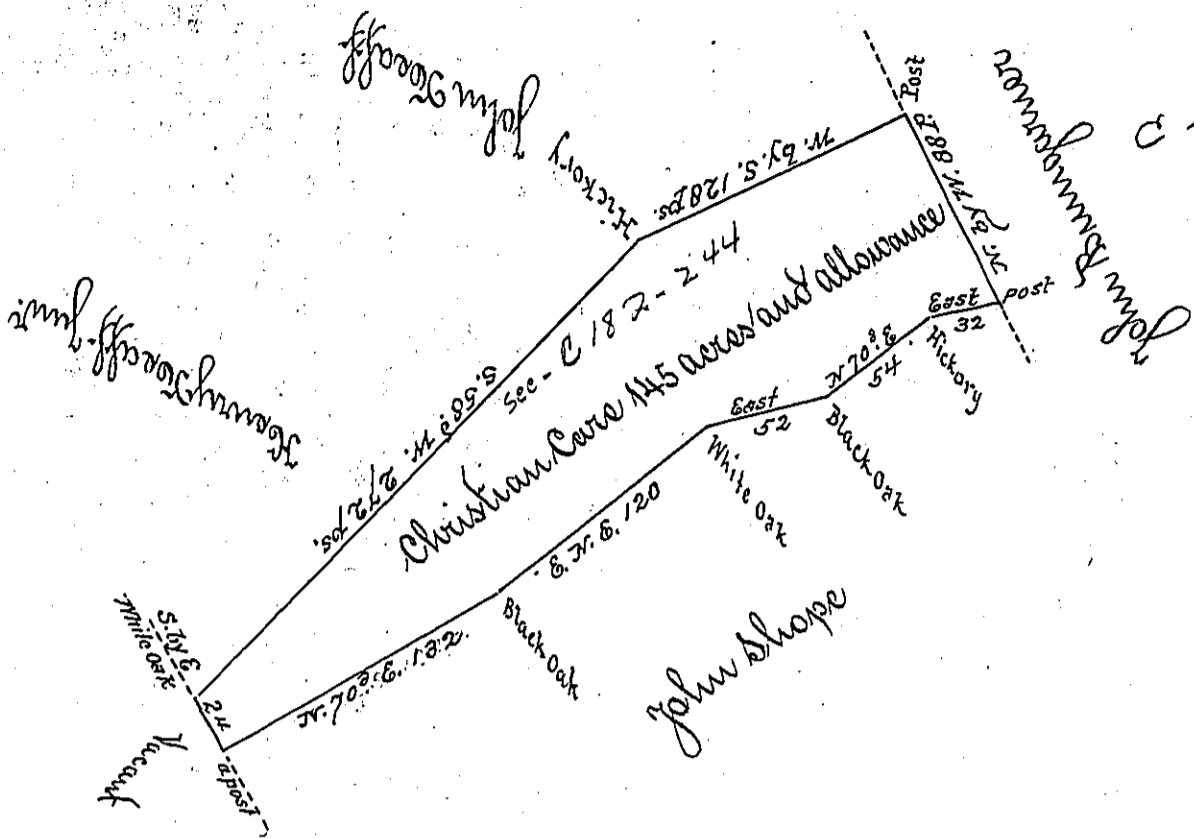 John Heaff
Hickory
W. by. S. 128 ps.
Post
N. by W. 88 P.
John Bumgarner
Henry Heaff. Junr.
S. 58° W. 272 ps.
See - D 182 - 244
Christian Care 145 acres and allowance
East
32
post
Hickory
N 70° E
54
Black Oak
East
52
White Oak
E. N. E. 120
Black Oak
N. 70° E. 132.
John Shope
S. by E
White Oak
24
Vacant
a post